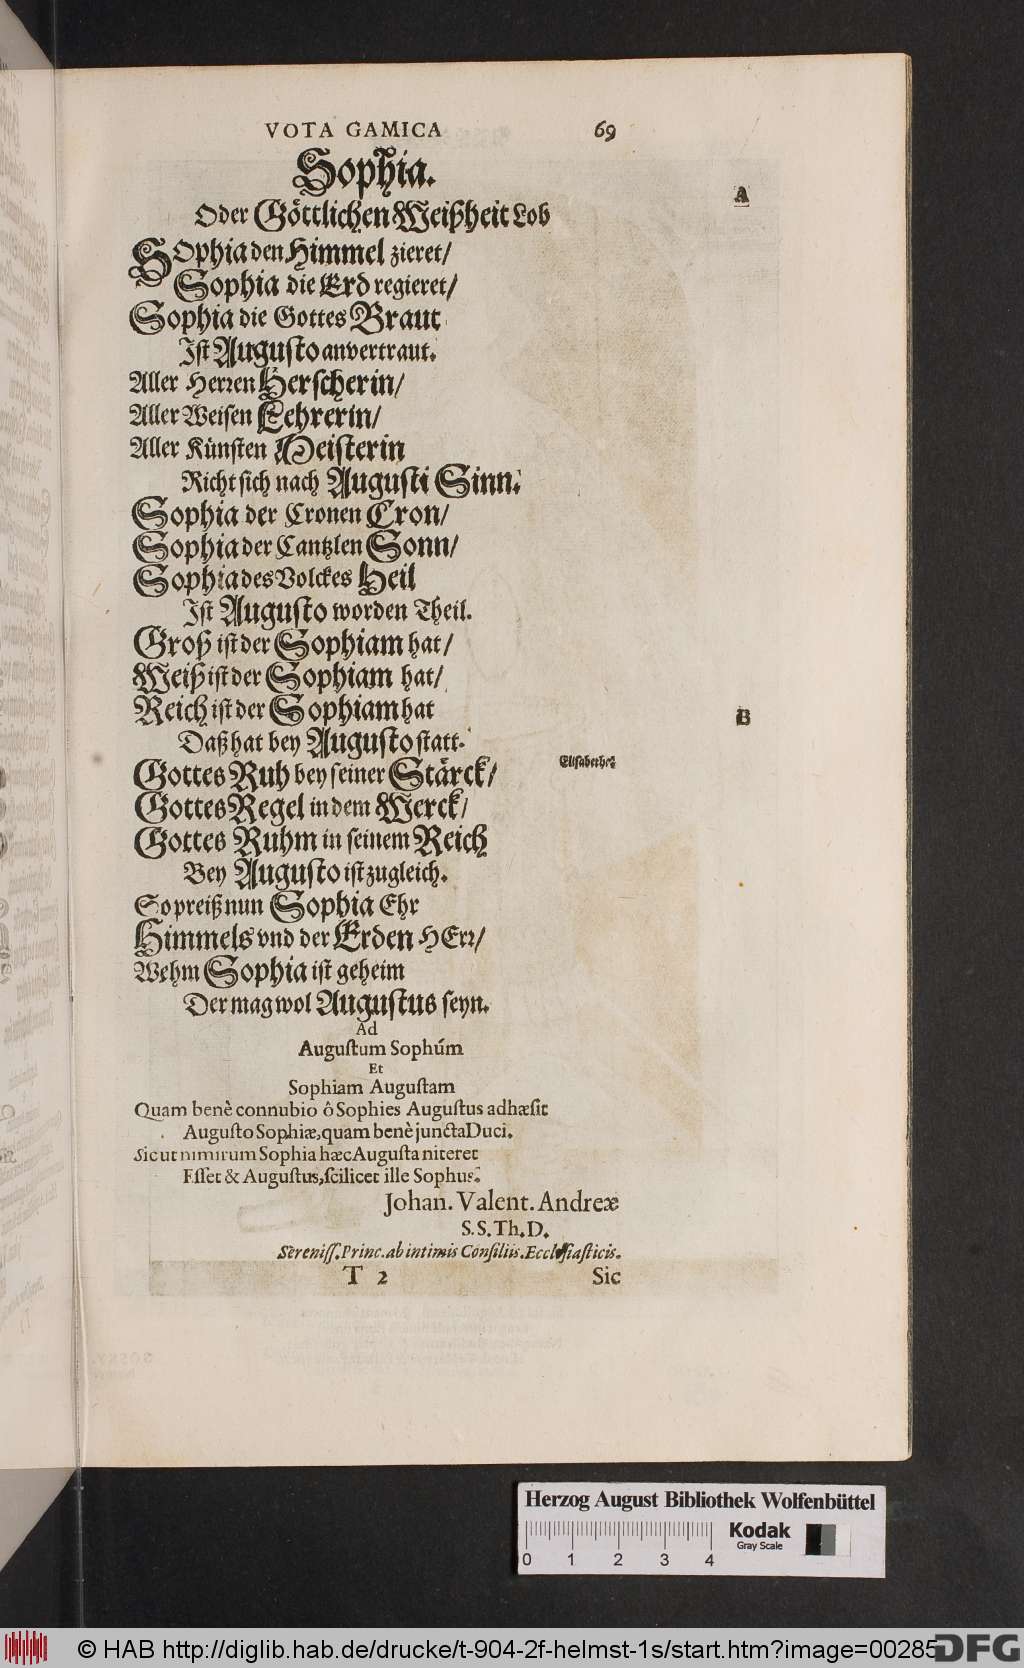 VOTA GAMICA 69
Sophia.
Oder Göttlichen Weißheit Lob
A
SOphia den Himmel zieret/
Sophia die Erd regieret/
Sophia die Gottes Braut
Ist Augusto anvertraut.
Aller Herren Herscherin/
Aller Weisen Lehrerin/
Aller Künsten Meisterin
Richt sich nach Augusti Sinn.
Sophia der Cronen Cron/
Sophia der Cantzlen Sonn/
Sophia des Volckes Heil
Ist Augusto worden Theil.
Groß ist der Sophiam hat/
Weiß ist der Sophiam hat/
Reich ist der Sophiam hat
B
Daß hat bey Augusto statt.
Gottes Ruh bey seiner Stärck/
Gottes Regel in dem Werck/
Gottes Ruhm in seinem Reich
Bey Augusto ist zugleich.
So preiß nun Sophia Ehr
Himmels vnd der Erden HErr/
Wehm Sophia ist geheim
Der mag wol Augustus seyn.
Ad
Augustum Sophúm
Et
Sophiam Augustam
Quam benè connubio ô Sophies Augustus adhæsit
Augusto Sophiæ, quam benè juncta Duci.
Sic ut nimirum Sophia hæc Augusta niteret
Esset & Augustus, scilicet ille Sophus.
Johan. Valent. Andreæ
S. S. Th. D.
Sereniss. Princ. ab intimis Consiliis. Ecclesiasticis.
T 2 Sic
Herzog August Bibliothek Wolfenbüttel
0 1 2 3 4
Kodak
Gray Scale
© HAB http://diglib.hab.de/drucke/t-904-2f-helmst-1s/start.htm?image=00285
DFG